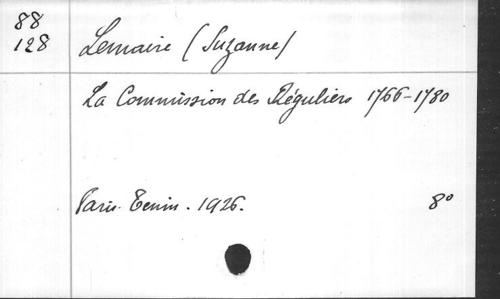 88
128
Lemaire (Suzanne)
La Commission des Réguliers 1766-1780
Paris. Tenin. 1926. 8°